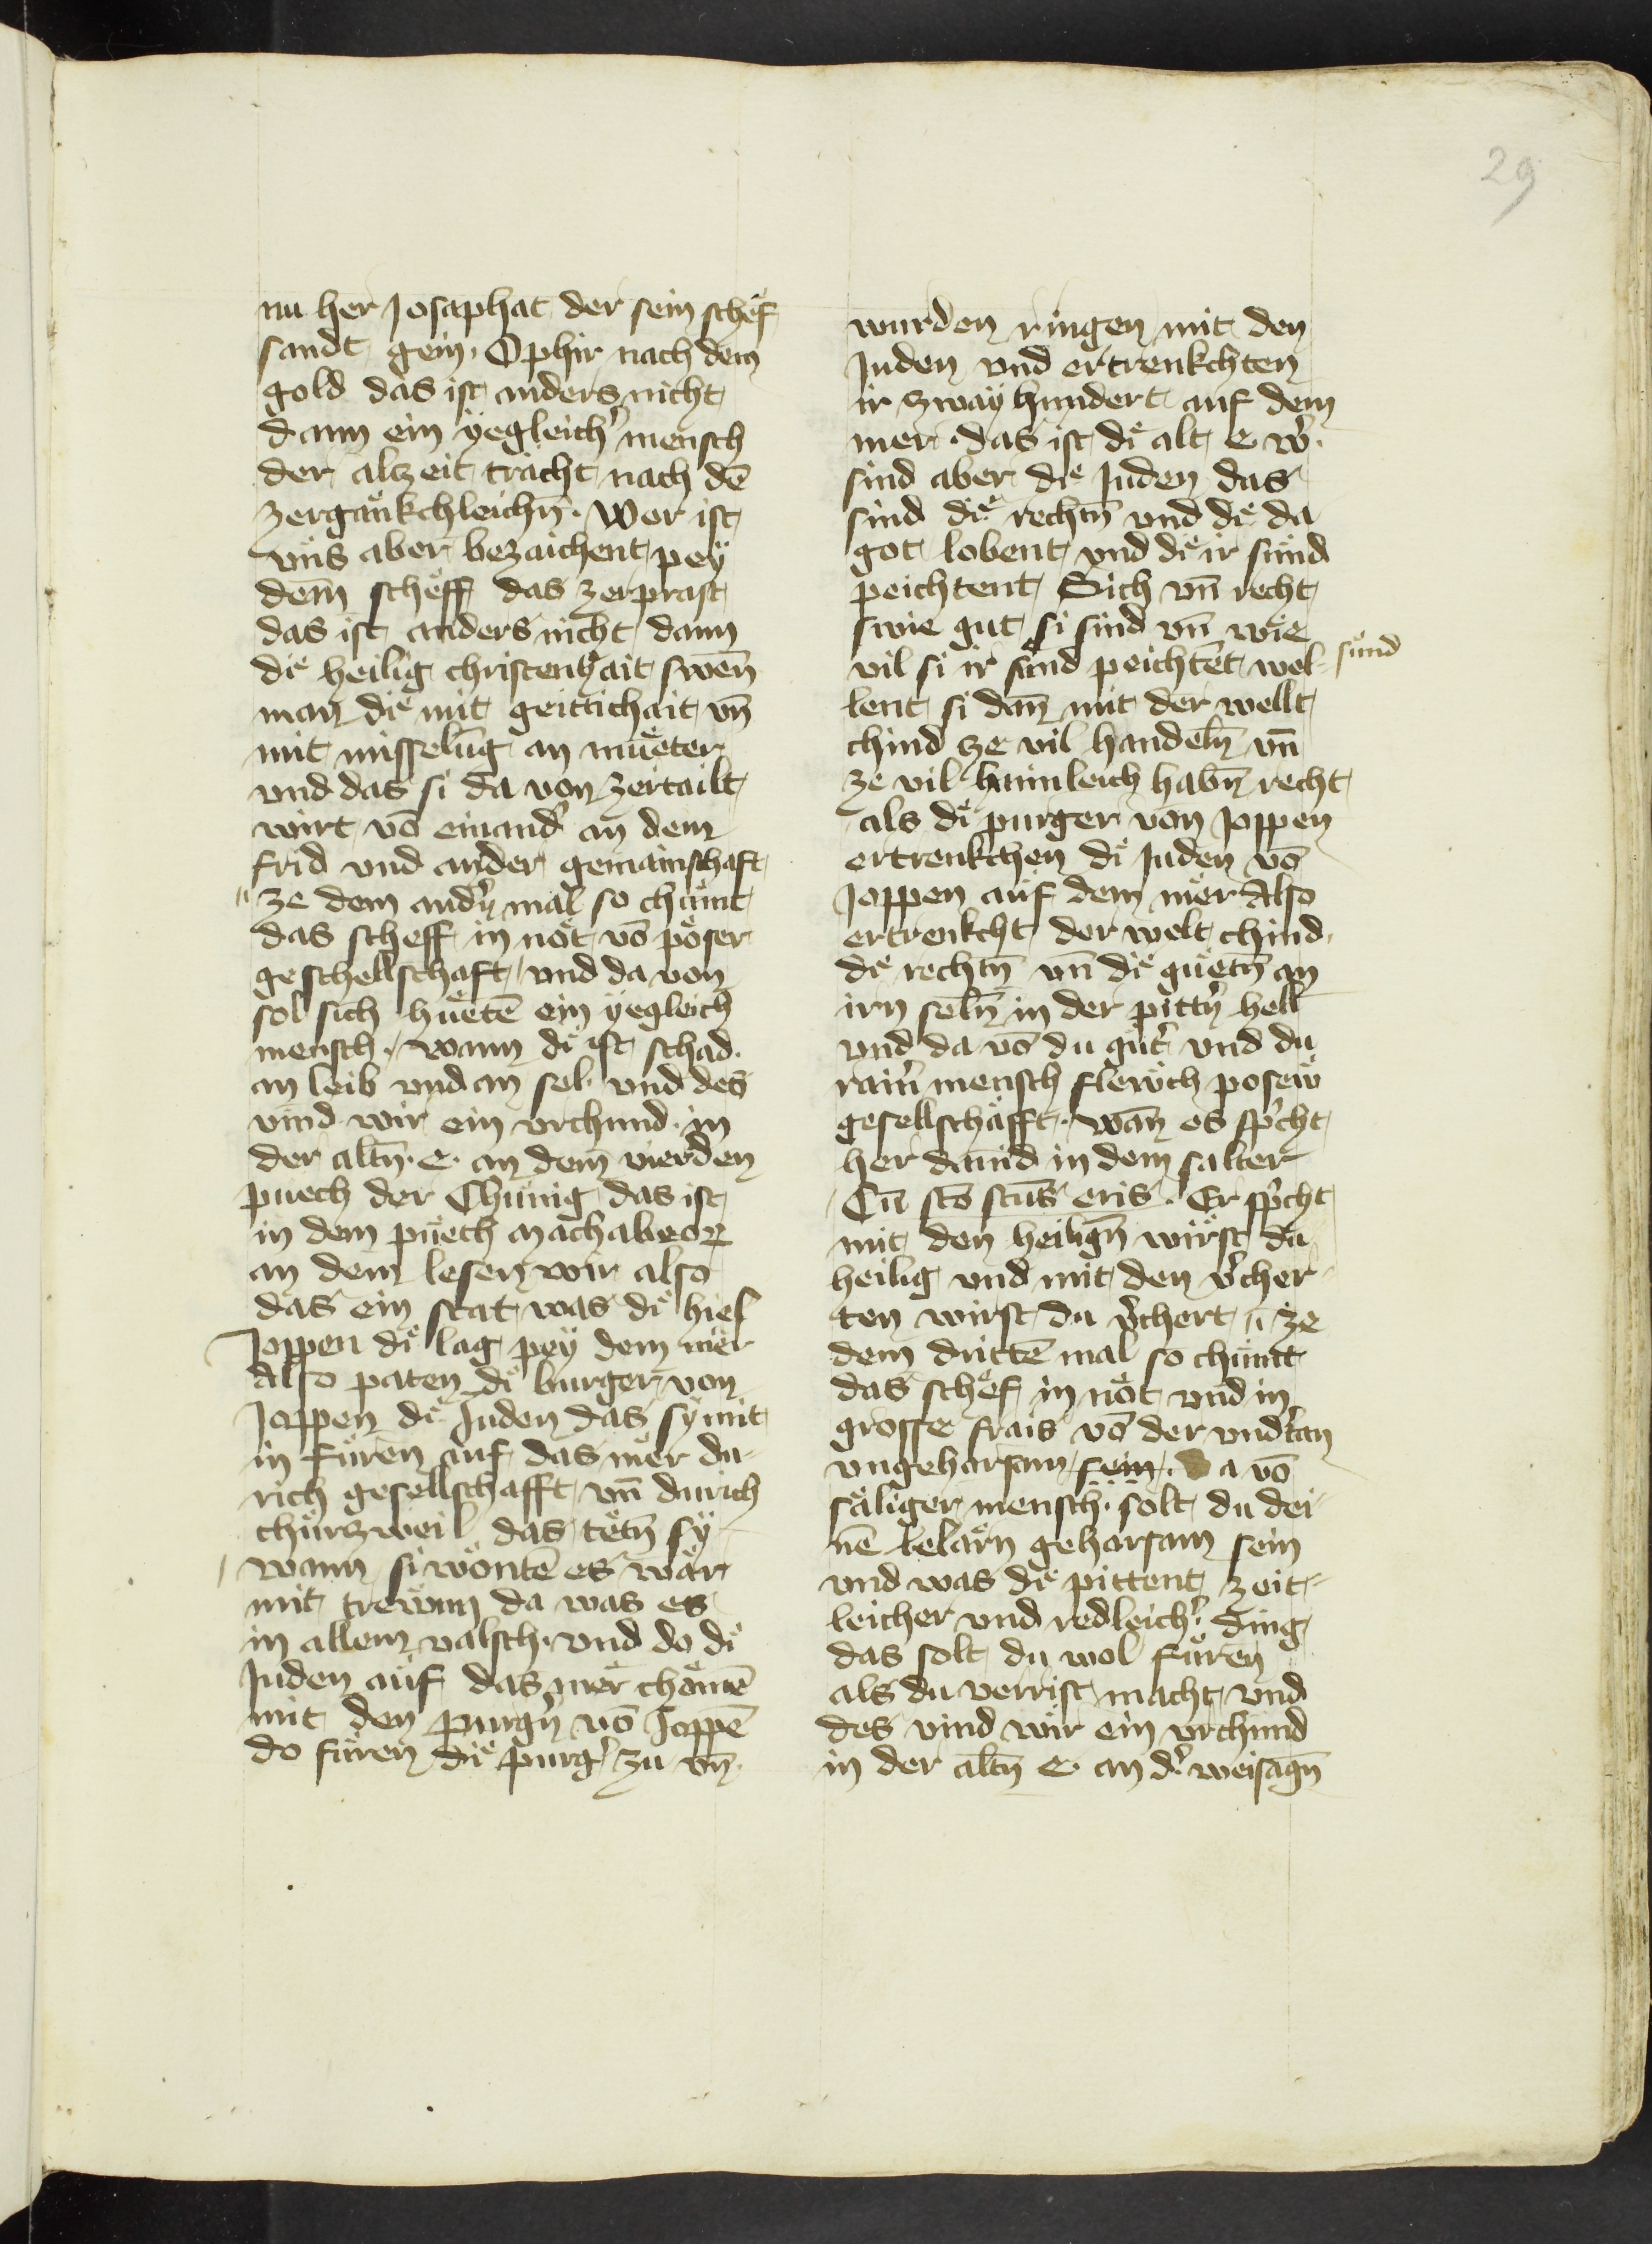 29
nu her Josaphat der sein schef
sandt gein Ophir nach dem
gold das ist anders nicht
dann ein yegleich͛ mensch
der alzeit tracht nach dē
zergänkchleichn̄. Wer ist
uns aber bezaichent pey
dem scheff das zerprast
das ist anders nicht dann
die heilig christenhait swen̄
man die mit geittichait vn̄
mit misselūg an mueter
und das si da von zertailt
wirt vō einand͛ an dem
frid und an der gemainschaft
ze dem and͛n mal so chumt
das scheff in not vō poser
geschellschaft und da von
sol sich huetē ein yegleich
mensch. wann di ist schad.
an leib und an sel. und des
vind wir ein vrchund in
der altn̄. e. an dem vierden
puech der Chunig das ist
in dem puech Machabeoꝝ
an dem lesen wir also
das ein stat was di hies
Joppen di lag pey dem mer
Also paten di burger von
Joppen die Juden das sy mit
in fůren auf das mer du-
rich gesellschafft vn̄ durich
churzweil das tetn̄ sy
wann si wontē es wär
mit trewen da was es
in allem valsch. und do di
Juden auf das mer chomē
mit den purg͛n vō Joppē
do furen die purg͛ zu vn̄
wurden ringen mit den
Juden und ertrenkchten
ir zway hundert auf dem
mer. das ist die alt e. w͛.
sind aber die Juden das
sind die rechtn̄ und die da
got lobent und die ir sund
peichtent Sich vn̄ recht
swie gut si sind vn̄ wie
vil si ir sund peichtēt wel-
sund
lent si dan̄ mit der wellt
chind ze vil handeln̄ vn̄
ze vil haimleich habn̄ recht
als di purger von Joppen
ertrenkchen di Juden vō
Joppen auf dem mer Also
ertrenkcht der welt chind
die rechtn̄ vn̄ die guetn̄ an
irn seln̄ in der pitt͛n hell
und da vō du gut͛ und du
rain͛ mensch flewch posew
gesellschafft. wan̄ es spͥcht
her dauid in dem salter
Cū scō scūs eris. Er spͥcht
mit den heilign̄ wirst du
heilig und mit den v͛cher-
ten wirst du v͛chert ze
dem drittē mal so chumt
das schef in not und in
grosse frais vō der und͛tan
ungeharsam sein. Da vō
saliger mensch. solt du dei-
nē lelarn geharsam sein
und was die pittent zeit-
leicher und redleich͛. ding
das solt du wol furen
als du verrist macht und
des vind wir ein vrchund
in der altn̄ e. an d͛ weisagn̄